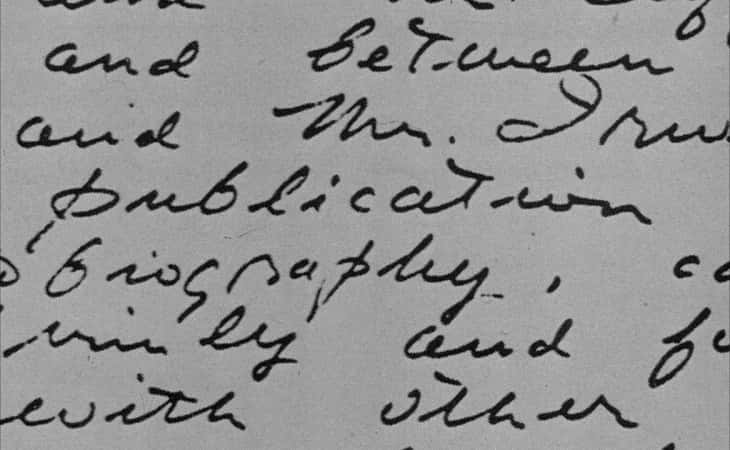 and
and between
and Mr. Irw
publication
biography, ca
and fu
with other